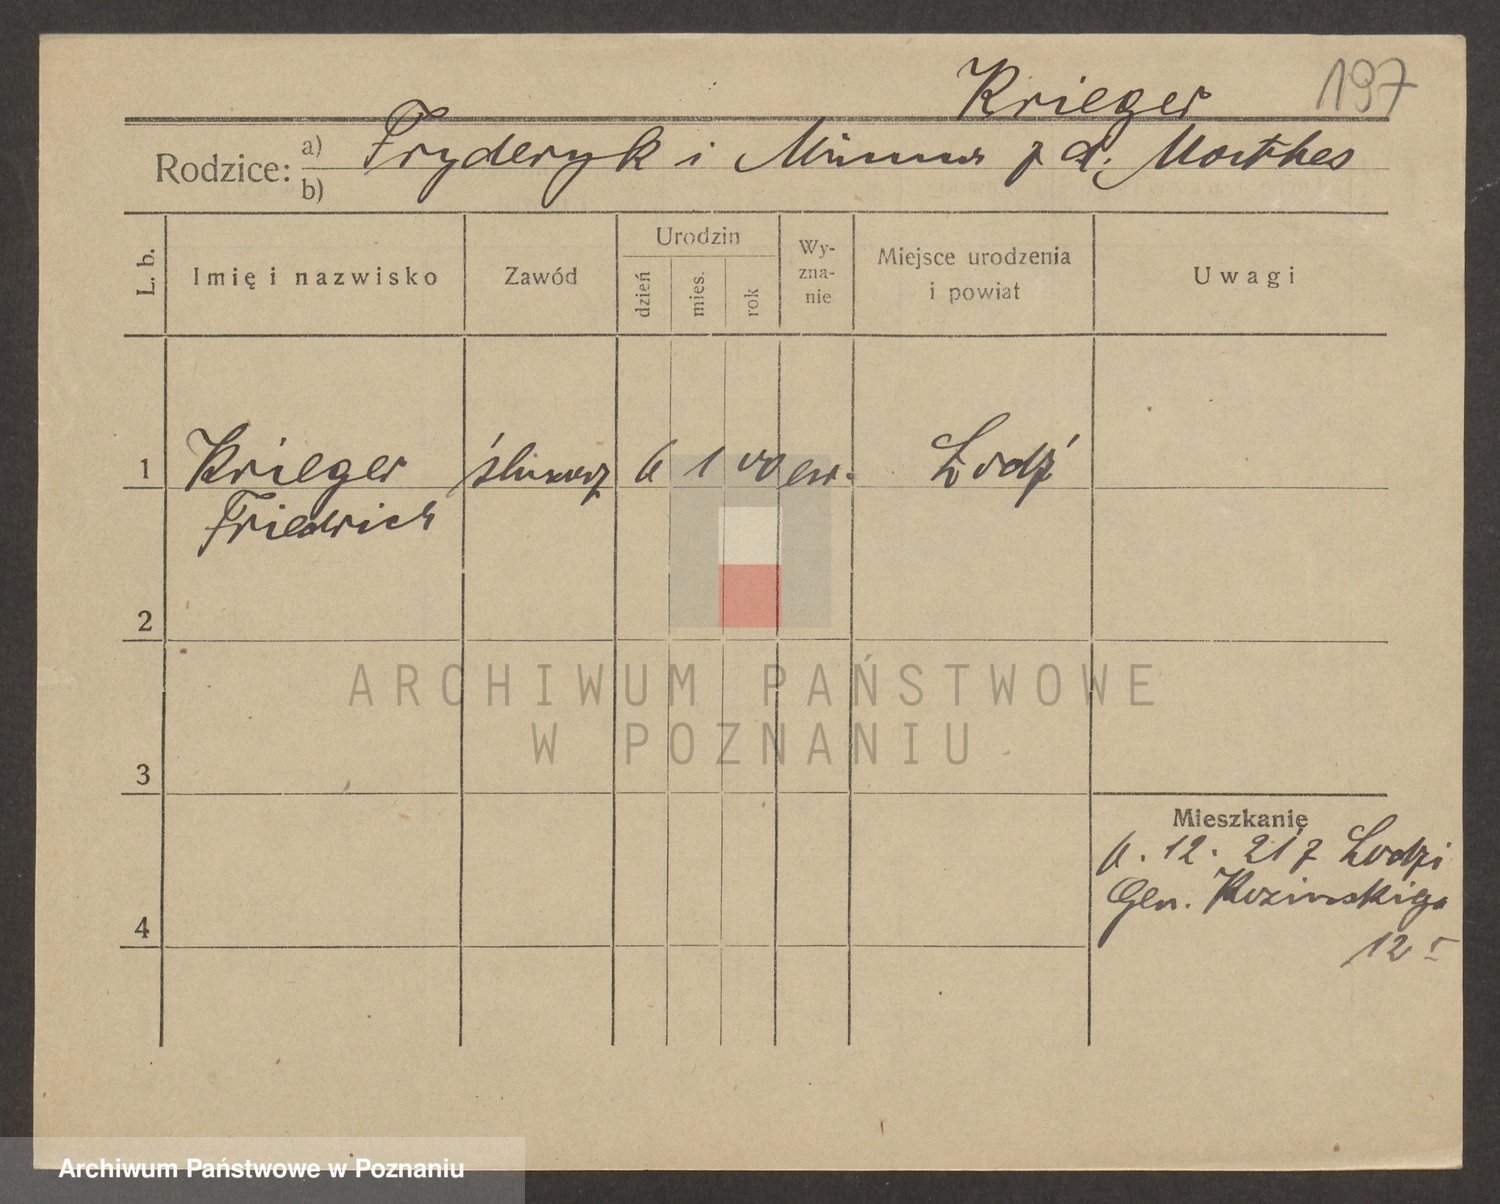 Krieger 197
Rodzice: a) Fryderyk i Minna z d. Matthes
b)
L. b. Imię i nazwisko Zawód Urodzin dzień mies. rok Wy-zna-nie Miejsce urodzenia i powiat Uwagi
1 Krieger ślusarz 6 1 00 ew. Łodź
Friedrich
2
ARCHIWUM PAŃSTWOWE
W POZNANIU
3
Mieszkanie
6. 12. 21 z Łodzi
Gen.
4
12
Archiwum Państwowe w Poznaniu